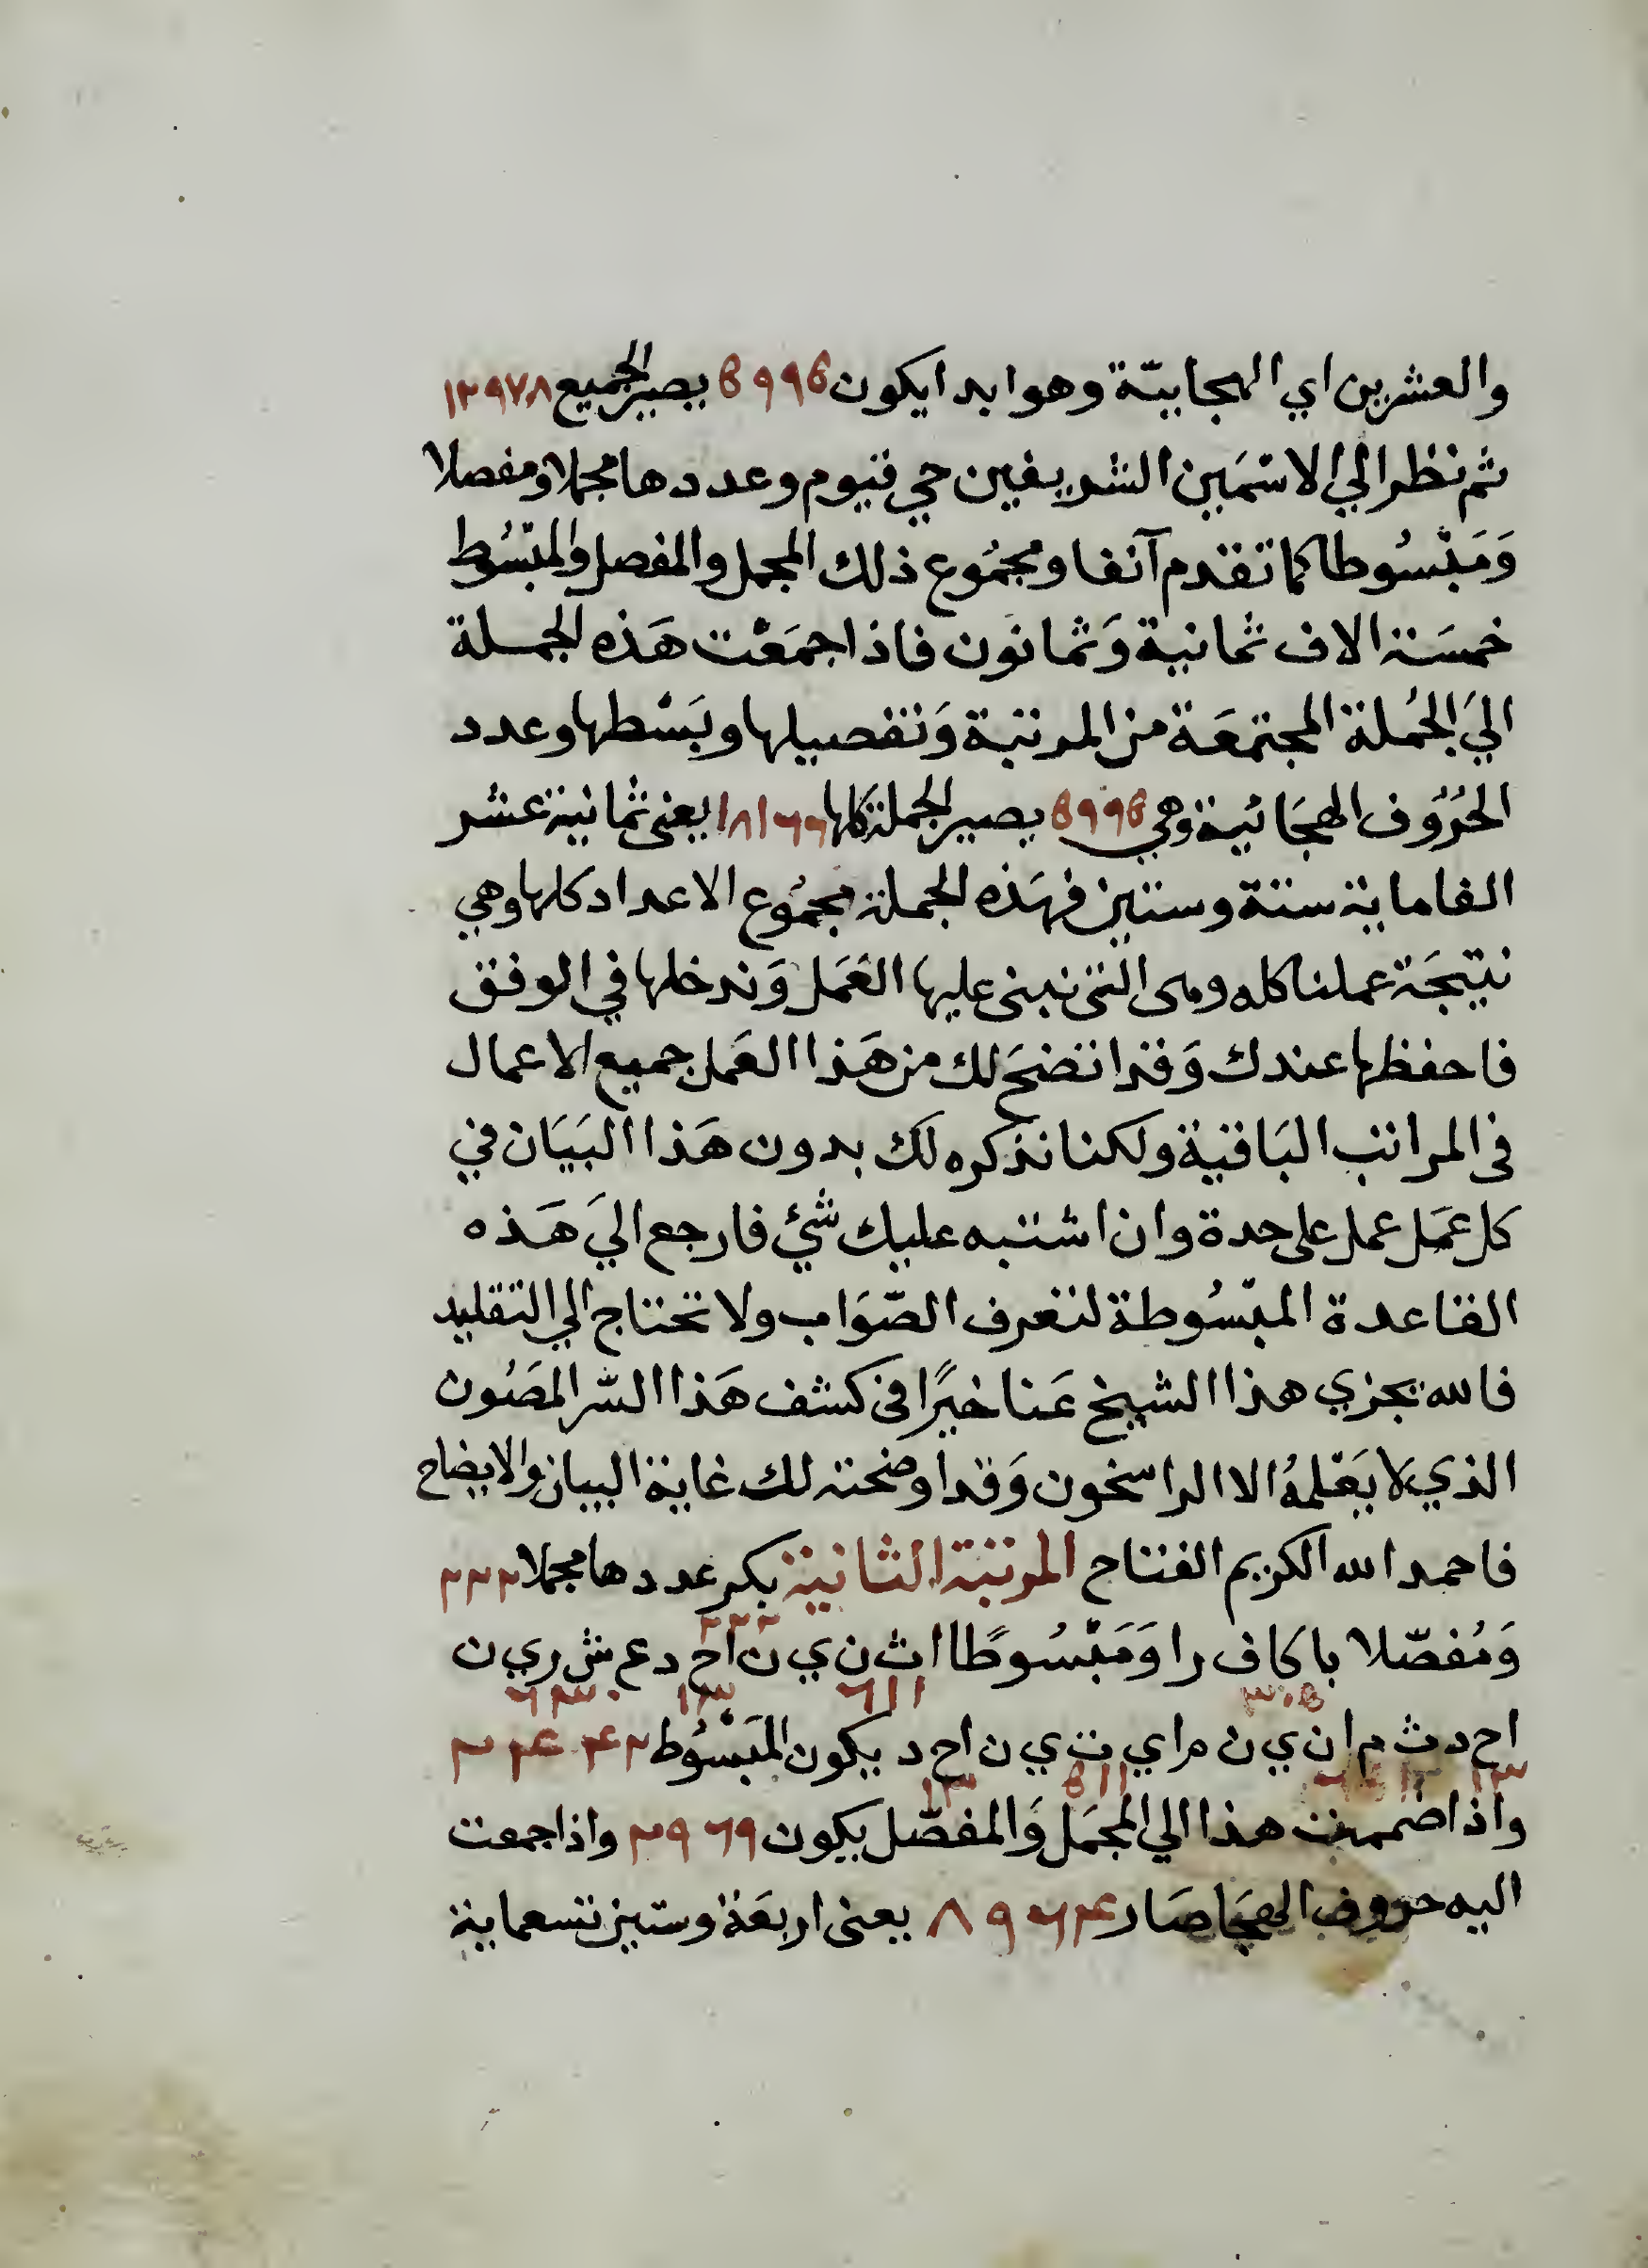 والعشرين اي الهجاييّة وهو ابدا يكون ٥٩٩٥ يصير الجميع ١٢٩٧٨
ثم نظر الي الاسْمَين الشريفين حي قيوم وعددها مجملا ومفصلا
وَمَبْسُوطا كما تقدم آنفا ومجمُوع ذلك المجمل والمفصل والمبْسُوط
خمسَة الاف ثمانية وَثمانون فاذا جمَعْت هَذه الجملة
اليَ الجُملة المجتمعَة من المرتبة وَتفصيلها وبَسْطها وعدد
الحُرُوف الهجَائية وهي ٥٩٩٥ يصير الجملة كلها ١٨١٦٦ يعنى ثمانية عشر
الفا ماية ستة وستين فهَذه الجملة مجمُوع الاعداد كلها وهي
نتيجَة عملنا كله وهى التى نبنى عليها العَمَل وَندخلها في الوفق
فاحفظها عندك وَقد اتضحَ لك من هَذا العَمل جميع الاعمال
فى المراتب البَاقية ولكنا نذكره لَك بدون هَذا البَيَان في
كل عمَل عمل على حدة وان اشتبه عليك شئ فارجع اليَ هَذه
القاعدة المبْسُوطة لتعرف الصّوَاب ولا تحتاج الي التقليد
فالله يجزي هذا الشيخ عَنا خيرًا فى كشف هَذا السّر المصَون
الذي لا يَعْلمهُ الا الراسخون وَقد اوضحته لك غاية البيان والايضاح
فاحمد الله الكريم الفتاح المرتبة الثانية بكر عددها مجملا ٢٢٢
وَمُفصّلا با كاف را وَمَبْسُوطًا اث ن ي ن ا ح د ع ش ر ي ن
ا ح د ث م ا ن ي ن م ا ي ت ي ن ا ح د يكون المَبْسُوط ٢٤٤٢
واذا ضممت هذا الي المجمَل وَالمفصّل يكون ٢٩٦٩ واذا جمعت
اليه حروف الهجَا صَار ٨٩٦٤ يعنى اربعَة وستين تسعماية